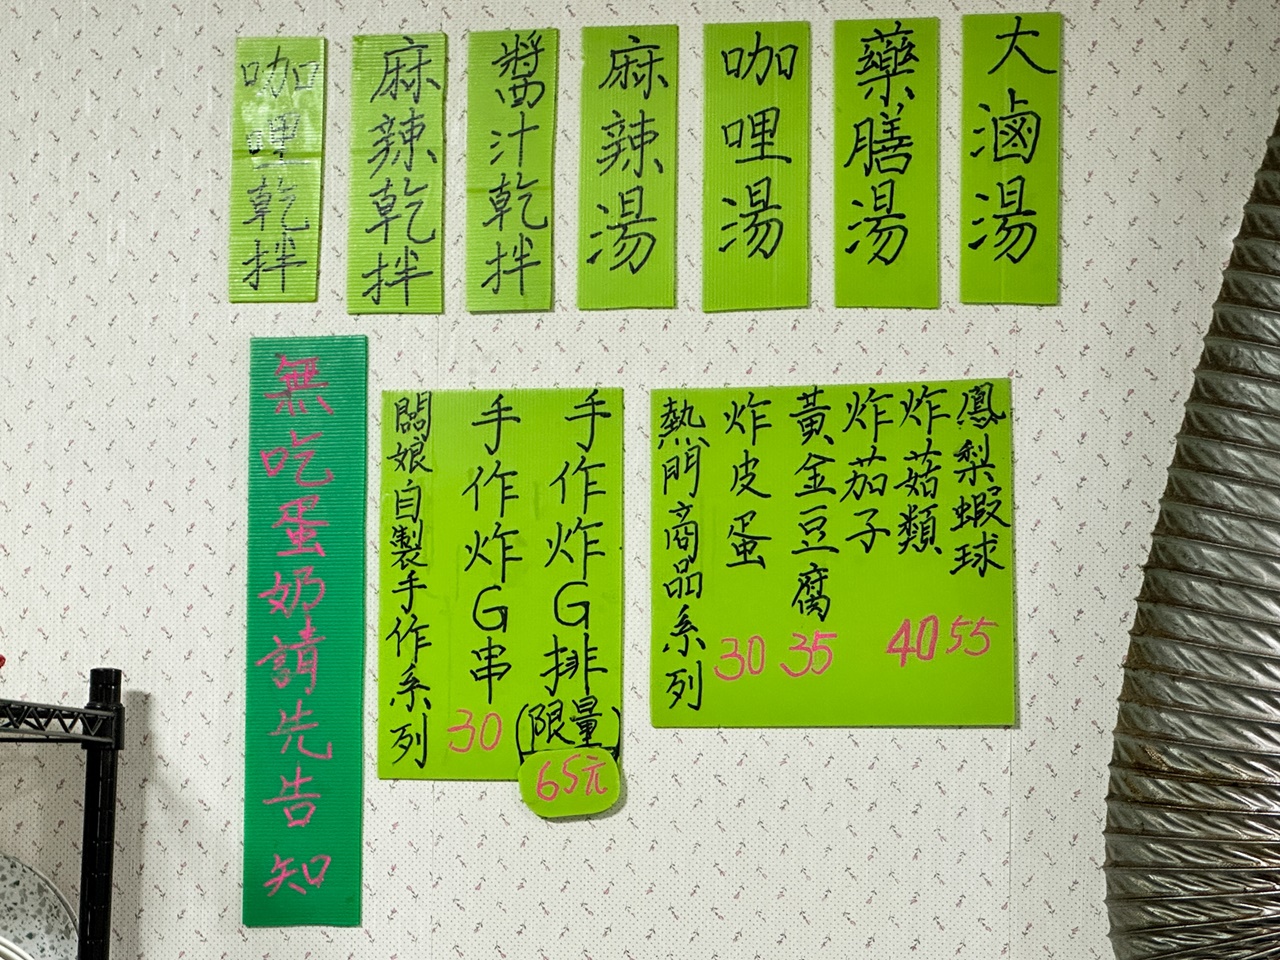 大滷湯
藥膳湯
咖哩湯
麻辣湯
醬汁乾拌
麻辣乾拌
咖哩乾拌
鳳梨蝦球
55
炸菇類
40
炸茄子
黃金豆腐
35
炸皮蛋
30
熱門商品系列
手作炸G排
(限量)
65元
手作炸G串
30
闆娘自製手作系列
無吃蛋奶請先告知